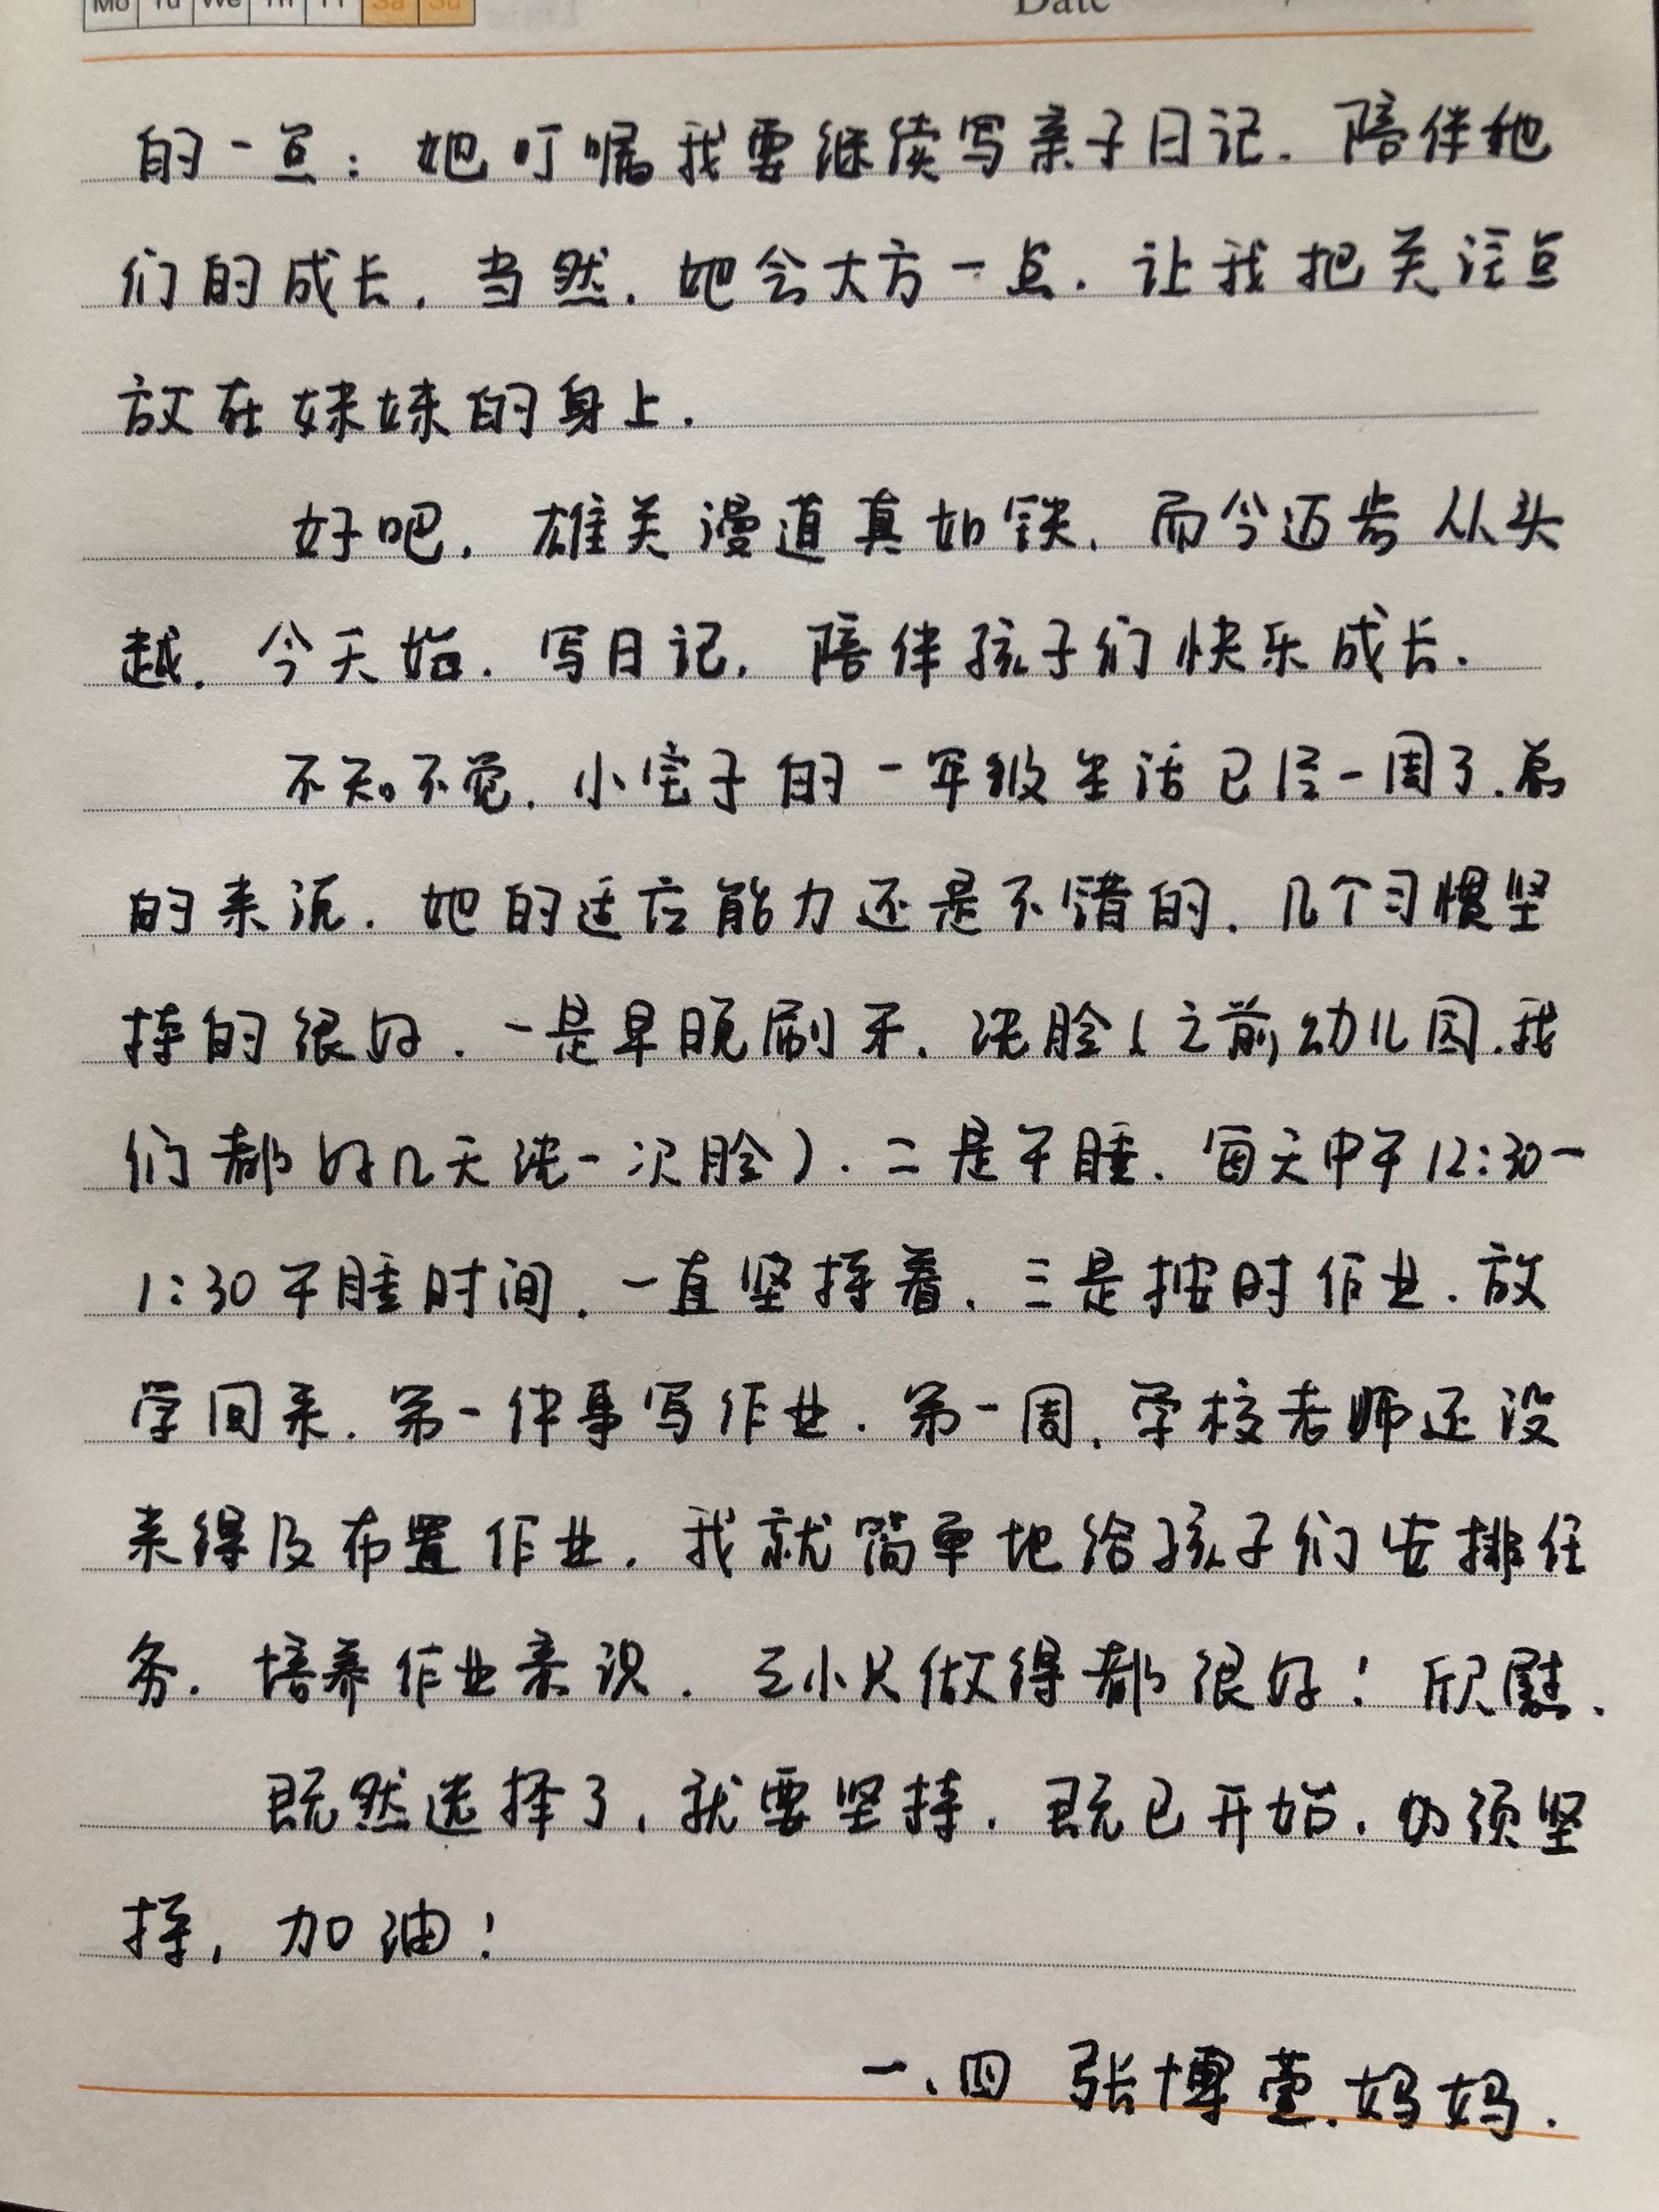 Mo Tu We Th Fr Sa Su Date
的一点：她叮嘱我要继续写亲子日记.陪伴他
们的成长.当然.她会大方一点.让我把关注点
放在妹妹的身上.
好吧.雄关漫道真如铁、而今迈步从头
越.今天始.写日记.陪伴孩子们快乐成长.
不知不觉.小宝子的一年级生活已经一周了.总
的来说.她的适应能力还是不错的.几个习惯坚
持的很好.一是早晚刷牙.洗脸(之前幼儿园.我
们都好几天洗一次脸).二是午睡.每天中午12:30一
1:30午睡时间.一直坚持着.三是按时作业.放
学回来.第一件事写作业.第一周.学校老师还没
来得及布置作业.我就简单地给孩子们安排任
务.培养作业意识.三小只做得都很好!欣慰.
既然选择了,就要坚持.既已开始.仍须坚
持,加油!
一、四 张博萱.妈妈.